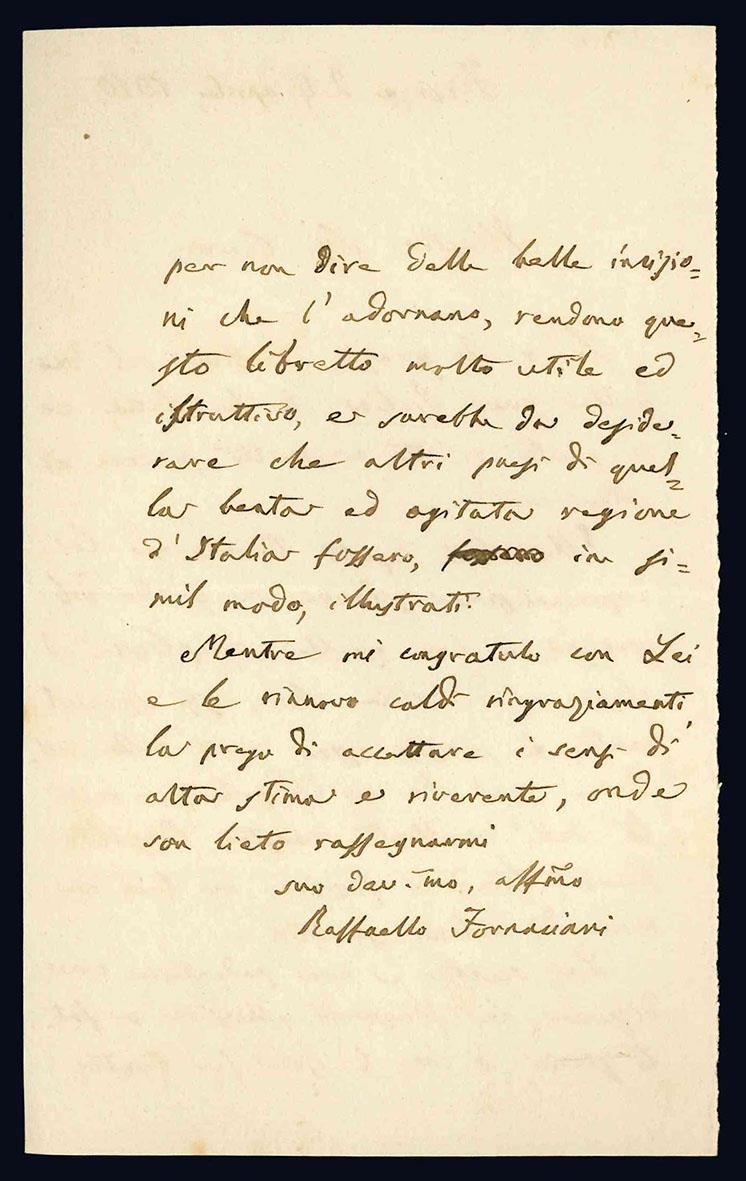 per non dire delle belle incisio=
ni che l'adornano, rendono que=
sto libretto molto utile ed
istruttivo, e sarebbe da deside=
rare che altri paesi di quel=
la beata ed agitata regione
d'Italia fossero, in si=
mil modo, illustrati.
Mentre mi congratulo con Lei
e le rinnovo caldi ringraziamenti
la prego di accettare i sensi di
alta stima e riverente, onde
son lieto rassegnarmi
suo dev.mo, affmo
Raffaello Fornaciari